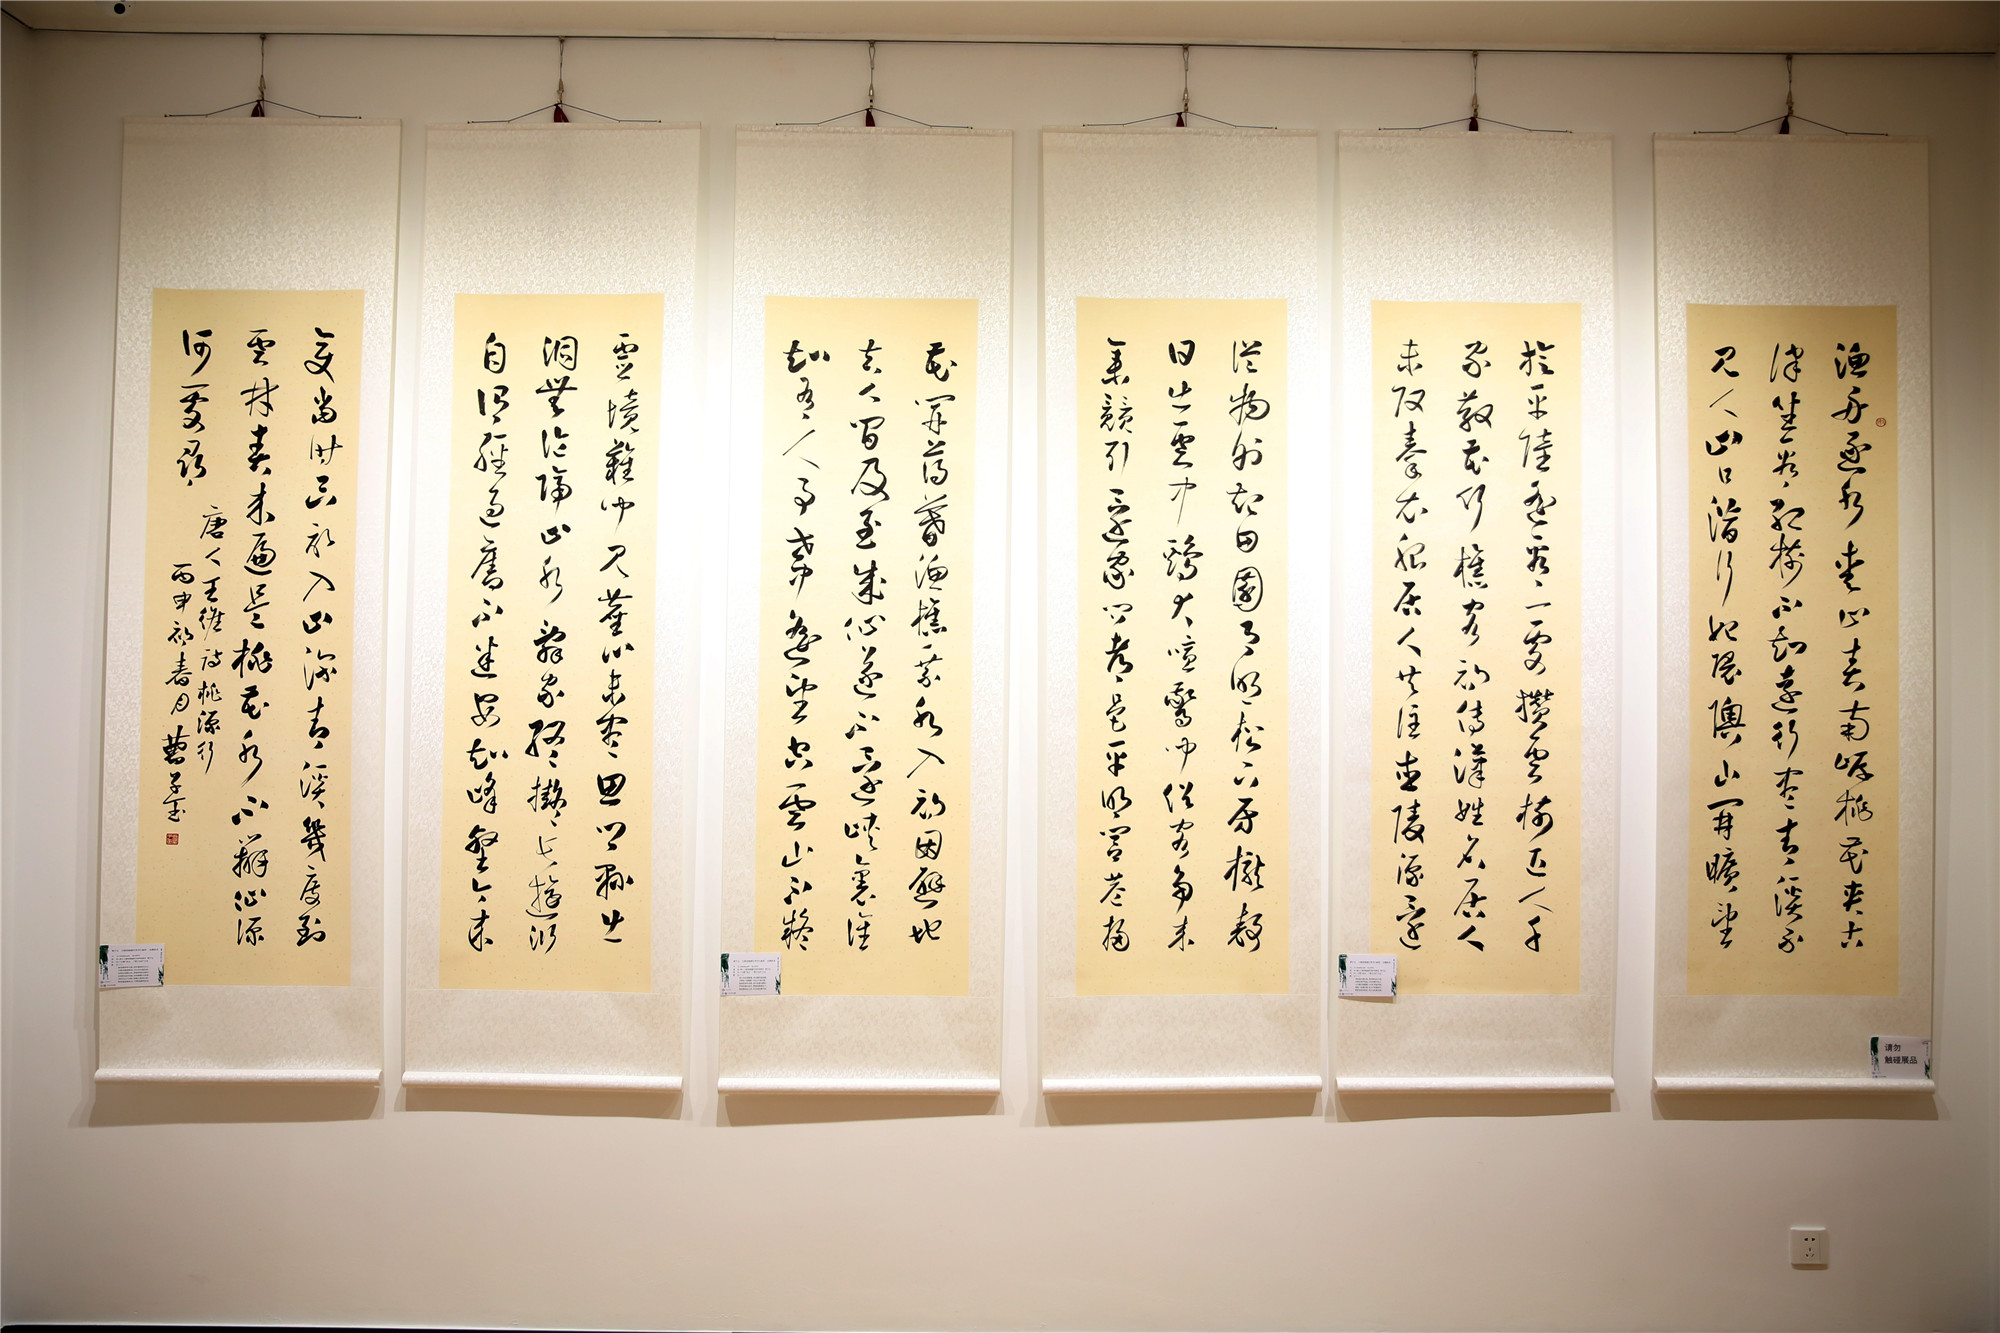 漁舟逐水愛山春兩岸桃花夾古
津坐看紅樹不知遠行盡青溪不
見人山口潛行始隈隩山開曠望
旋平陸遙看一處攢雲樹近入千
家散花竹樵客初傳漢姓名居人
未改秦衣服居人共住武陵源還
從物外起田園月明松下房櫳靜
日出雲中鷄犬喧驚聞俗客爭來
集競引還家問都邑平明閭巷掃
花開薄暮漁樵乘水入初因避地
去人間及至成仙遂不還峽裏誰
知有人事世中遙望空雲山不疑
靈境難聞見塵心未盡思鄉縣出
洞無論隔山水辭家終擬長遊衍
自謂經過舊不迷安知峰壑今來
變當時只記入山深青溪幾度到
雲林春來遍是桃花水不辨仙源
何處尋
唐人王維詩桃源行
丙申初春月曹子玉
请勿
触碰展品